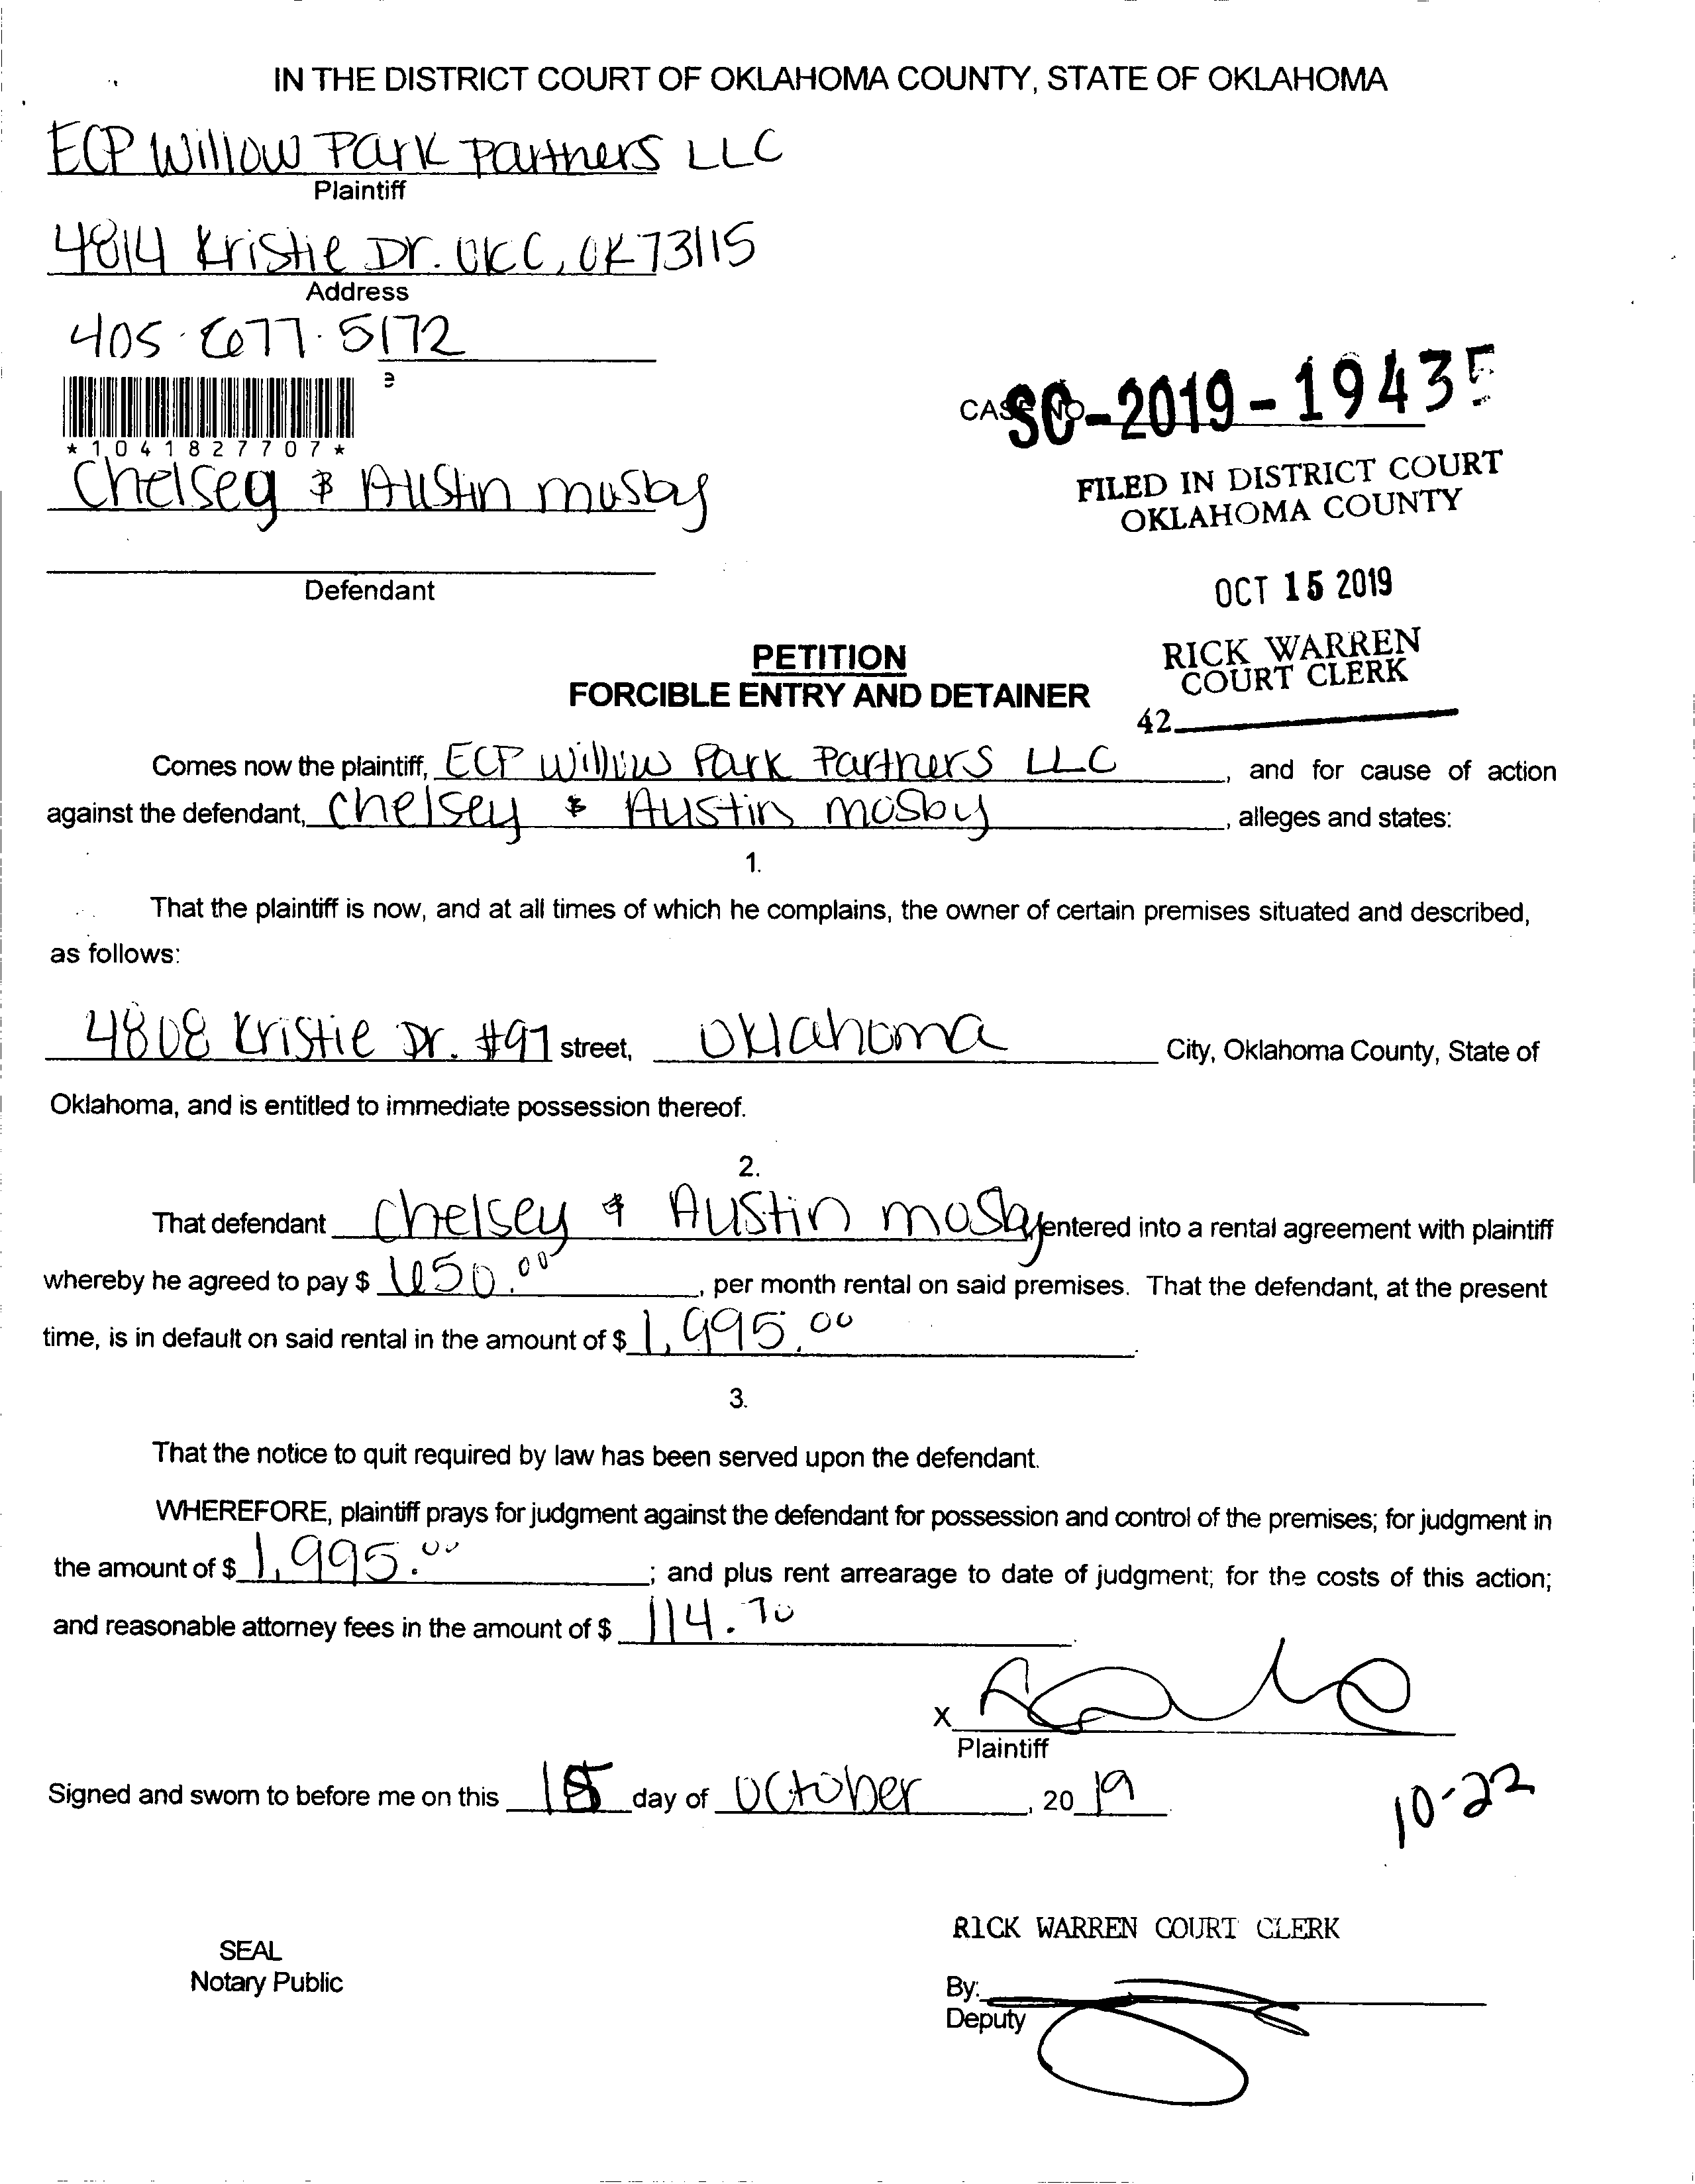 IN THE DISTRICT COURT OF OKLAHOMA COUNTY, STATE OF OKLAHOMA
ECP Willow Park Partners LLC
Plaintiff
4814 Kristie Dr. OKC, OK 73115
Address
405·677·5172
*1041827707*
CASE NO SC-2019-19435
Chelsey & Austin mosby
FILED IN DISTRICT COURT
OKLAHOMA COUNTY
Defendant
OCT 15 2019
PETITION
FORCIBLE ENTRY AND DETAINER
RICK WARREN
COURT CLERK
42
Comes now the plaintiff, ECP Willow Park Partners LLC, and for cause of action
against the defendant, Chelsey & Austin mosby, alleges and states:
1.
That the plaintiff is now, and at all times of which he complains, the owner of certain premises situated and described,
as follows:
4808 Kristie Dr. #97 street, Oklahoma City, Oklahoma County, State of
Oklahoma, and is entitled to immediate possession thereof.
2.
That defendant Chelsey & Austin mosby entered into a rental agreement with plaintiff
whereby he agreed to pay $ 650.00, per month rental on said premises. That the defendant, at the present
time, is in default on said rental in the amount of $ 1,995.00.
3.
That the notice to quit required by law has been served upon the defendant.
WHEREFORE, plaintiff prays for judgment against the defendant for possession and control of the premises; for judgment in
the amount of $ 1,995.00; and plus rent arrearage to date of judgment; for the costs of this action;
and reasonable attorney fees in the amount of $ 114.70.
X
Plaintiff
Signed and sworn to before me on this 15 day of October, 2019
10-22
RICK WARREN COURT CLERK
SEAL
Notary Public
By:
Deputy